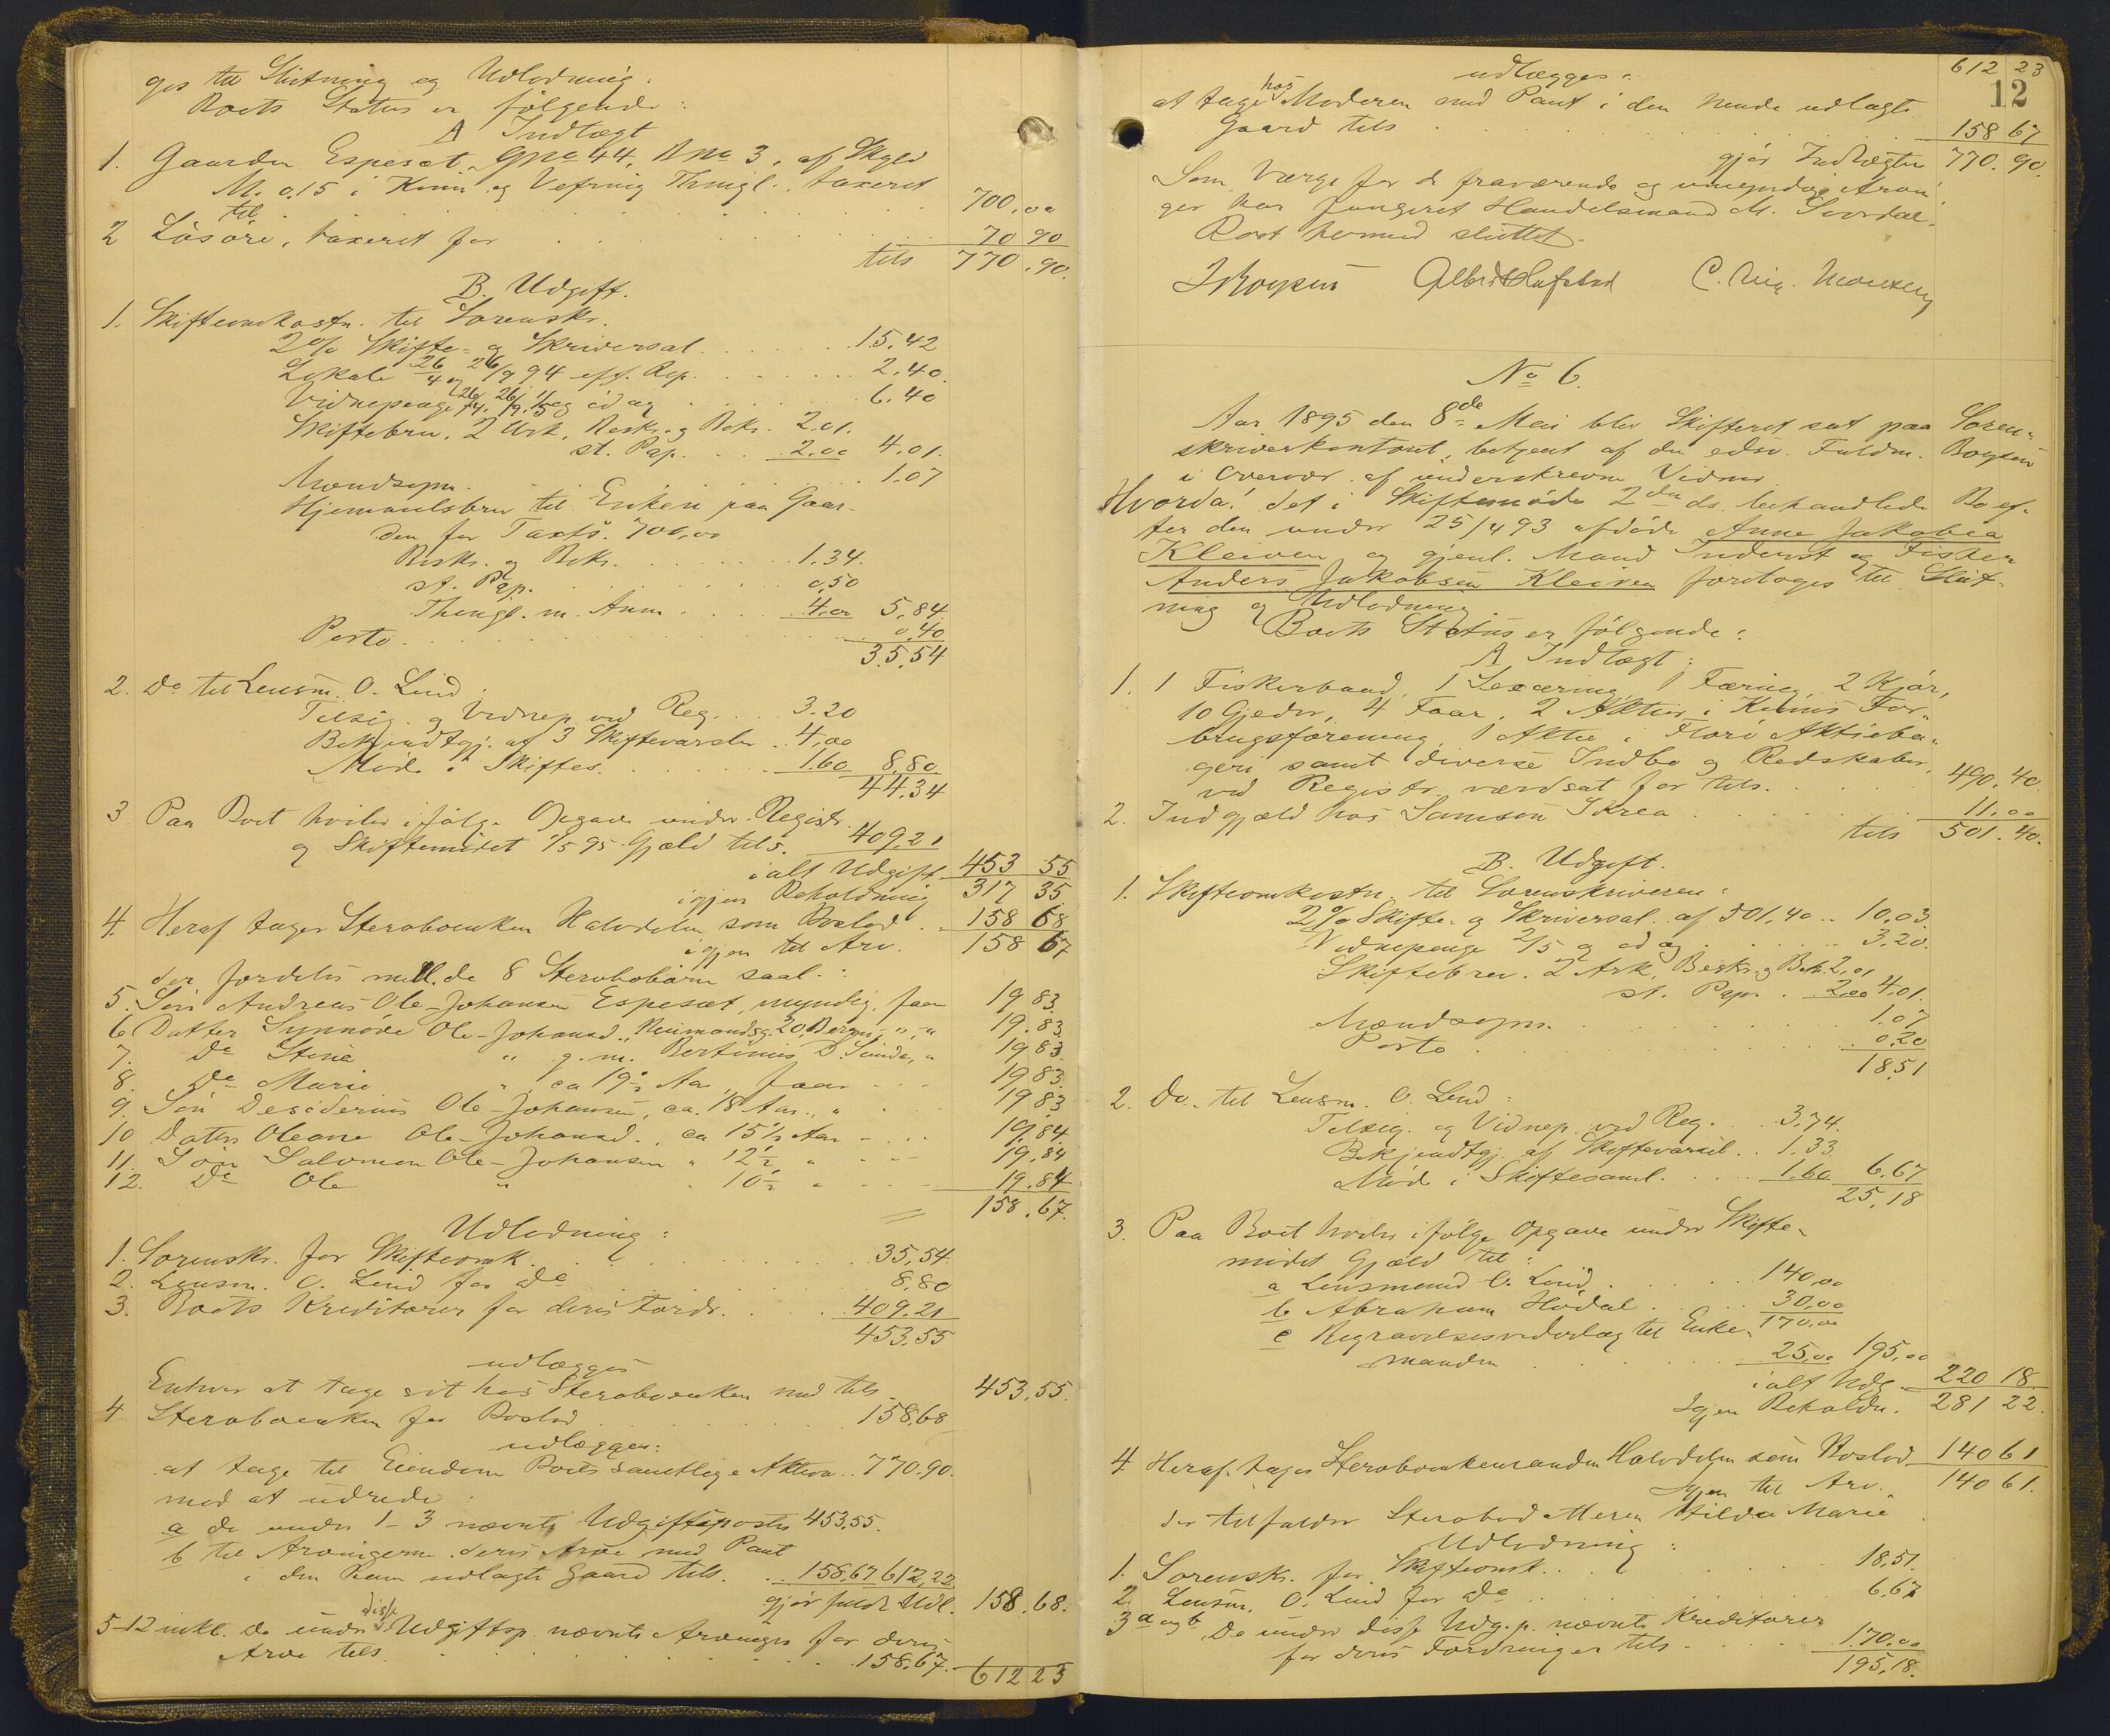 ges til Slutning og Udlodning.
Boets Status er følgende:
A Indtægt
1. Gaarden Espesæt, Gno 44, Bno 3, af Skyld
M. 0,15 i Kinn og Vefring Thingl., taxeret
til . . . 700,00
2 Løsøre, taxeret for . . . 70 90
tils 770,90.
B. Udgift.
1. Skifteomkostn. til Sorenskr.
2% Skifte- og Skriversal. . . . 15.42
Lokale 26/4 og 26/9 94 eft. Reg. . . . 2,40.
Vidnepenge 26/4, 26/9, 1/5 og idag . . . 6.40
Skiftebrev, 2 Ark, Beskr. og Bekr. 2.01.
st. Pap. . . 2.00 4.01.
Mændsopn. . . . 1.07
Hjemmelsbrev til Enken paa Gaar-
den for Taxts. 700,00
Beskr. og Bekr. . . . 1.34.
st. Pap. . . . 0,50
Thingl. m. Anm. . . . 4.00 5,84.
Porto . . . 0,40
35,54
2. Do til Lensm. O. Lind:
Tilsig. og Vidnep. ved Reg. . . 3.20
Bekjendtgj. af 3 Skiftevarsler . 4,00
Møde i Skiftes. . . . 1.60 8,80
44,34
3. Paa Boet hviler ifølge Opgave under Registr.
og Skiftemødet 1/5 95 Gjæld tils. 409,21
ialt Udgift 453 55.
igjen Beholdning 317 35.
4. Heraf tager Stervboenken Halvdelen som Boslod . . 158 68
igjen til Arv. 158 67
der fordeles mell. de 8 Stervbobørn saal.:
5. Søn Andreas Ole-Johansen Espesæt, myndig, faar 19 83.
6 Datter Synnøve Ole-Johansd., Neumandsg. 20, Bergen, " " 19.83.
7. Do Stine " g. m. Bertinius D. Sunde, " 19 83.
8. Do Marie " ca 19½ Aar, faar - - 19 83.
9. Søn Desiderius Ole-Johansen, ca. 18 Aar, " . . 19 83
10 Datter Oleane Ole-Johansd., ca 15½ Aar - . . 19,84.
11. Søn Salomon Ole-Johansen " 12½ " - - 19.84
12. Do Ole " " 10½ " - - 19.84
158.67.
Udlodning:
1. Sorenskr. for Skifteomk. . . . 35,54.
2. Lensm. O. Lind for Do . . . 8,80
3. Boets Kreditorer for deres Fordr. . . . 409.21
453.55
udlægges
Enhver at tage sit hos Stervboenken med tils 453,55.
4 Stervboenken for Boslod . . . 158,68
udlægges:
at tage til Eiendom Boets samtlige Aktiva . . 770.90.
mod at udrede:
a de under 1-3 nævnte Udgiftsposter 453,55.
b til Arvingerne deres Arve med Pant
i den Ham udlagte Gaard tils. . . 158,67 612,22
gjør fuldt Udl. 158.68.
5-12 inkl. De under disse Udgiftsp. nævnte Arvinger for deres
Arve tils. . . . 158.67.
612 23
612 23
12
udlægges:
at tage hos Moderen med Pant i den hende udlagte
Gaard tils . . . 158 67
gjør Indtægten 770. 90.
Som Værge for de fraværende og umyndige Arvin-
ger har fungeret Handelsmand M. Svordal.
Boet hermed sluttet.
J Boysen Albert Hafstad C. Aug. Mowesen
No 6.
Aar 1895 den 8de Mai blev Skifteret sat paa Soren-
skriverkontoret, betjent af den edsv. Fuldm. Boysen
i Overvær af underskrevne Vidner
Hvorda: det i Skiftemøde 2den ds. behandlede Bo ef-
ter den under 25/4 93 afdøde Anne Jakobea
Kleiven og gjenl. Mand Inderst og Fisker
Anders Jakobsen Kleiven foretoges til Slut-
ning og Udlodning.
Boets Status er følgende:
A Indtægt:
1. 1 Fiskerbaad, 1 Sexæring, 1 Færing, 2 Kjør,
10 Gjeder, 4 Faar, 2 Aktier i Kinns For-
brugsforening, 1 Aktie i Florø Aktieba-
geri samt diverse Indbo og Redskaber,
ved Registr. værdsat for tils. . . . 490. 40.
2. Indgjæld hos Samson Skrea . . . 11.00
tils 501. 40.
B. Udgift.
1. Skifteomkostn. til Sorenskriveren:
2% Skifte- og Skriversal. af 501,40 . . 10,03.
Vidnepenge 2/5 og idag . . . 3.20.
Skiftebrev. 2 Ark, Beskr. og Bekr. 2,01
st. Pap. . 2.00 4,01.
Mændsopn. . . . 1.07
Porto . . . 0.20
18,51
2. Do. til Lensm. O. Lind:
Tilsig. og Vidnep. ved Reg. . . 3,74.
Bekjendtgj. af Skiftevarsel . . 1,33.
Møde i Skiftesaml. . . . 1.60 6.67
25,18
3. Paa Boet hviler ifølge Opgave under Skifte-
mødet Gjæld til:
a Lensmand O. Lind . . . 140,00
b Abraham Hødal . . . 30,00
170.00
c Begravelsesvederlag til Enke-
manden . . . 25,00 195,00
ialt Udg. 220 18.
Igjen Beholdn. 281 22.
4 Heraf tager Stervboenkemanden Halvdelen som Boslod. 140 61
Igjen til Arv. 140 61.
der tilfalder Stervbodatteren Hilda Marie
Udlodning:
1. Sorenskr. for Skifteomk. . . . 18,51.
2. Lensm. O. Lind for Do . . . 6.67
3 a og b De under disse Udg.p. nævnte Kreditorer
for deres Fordringer tils . . . 170.00
195,18.